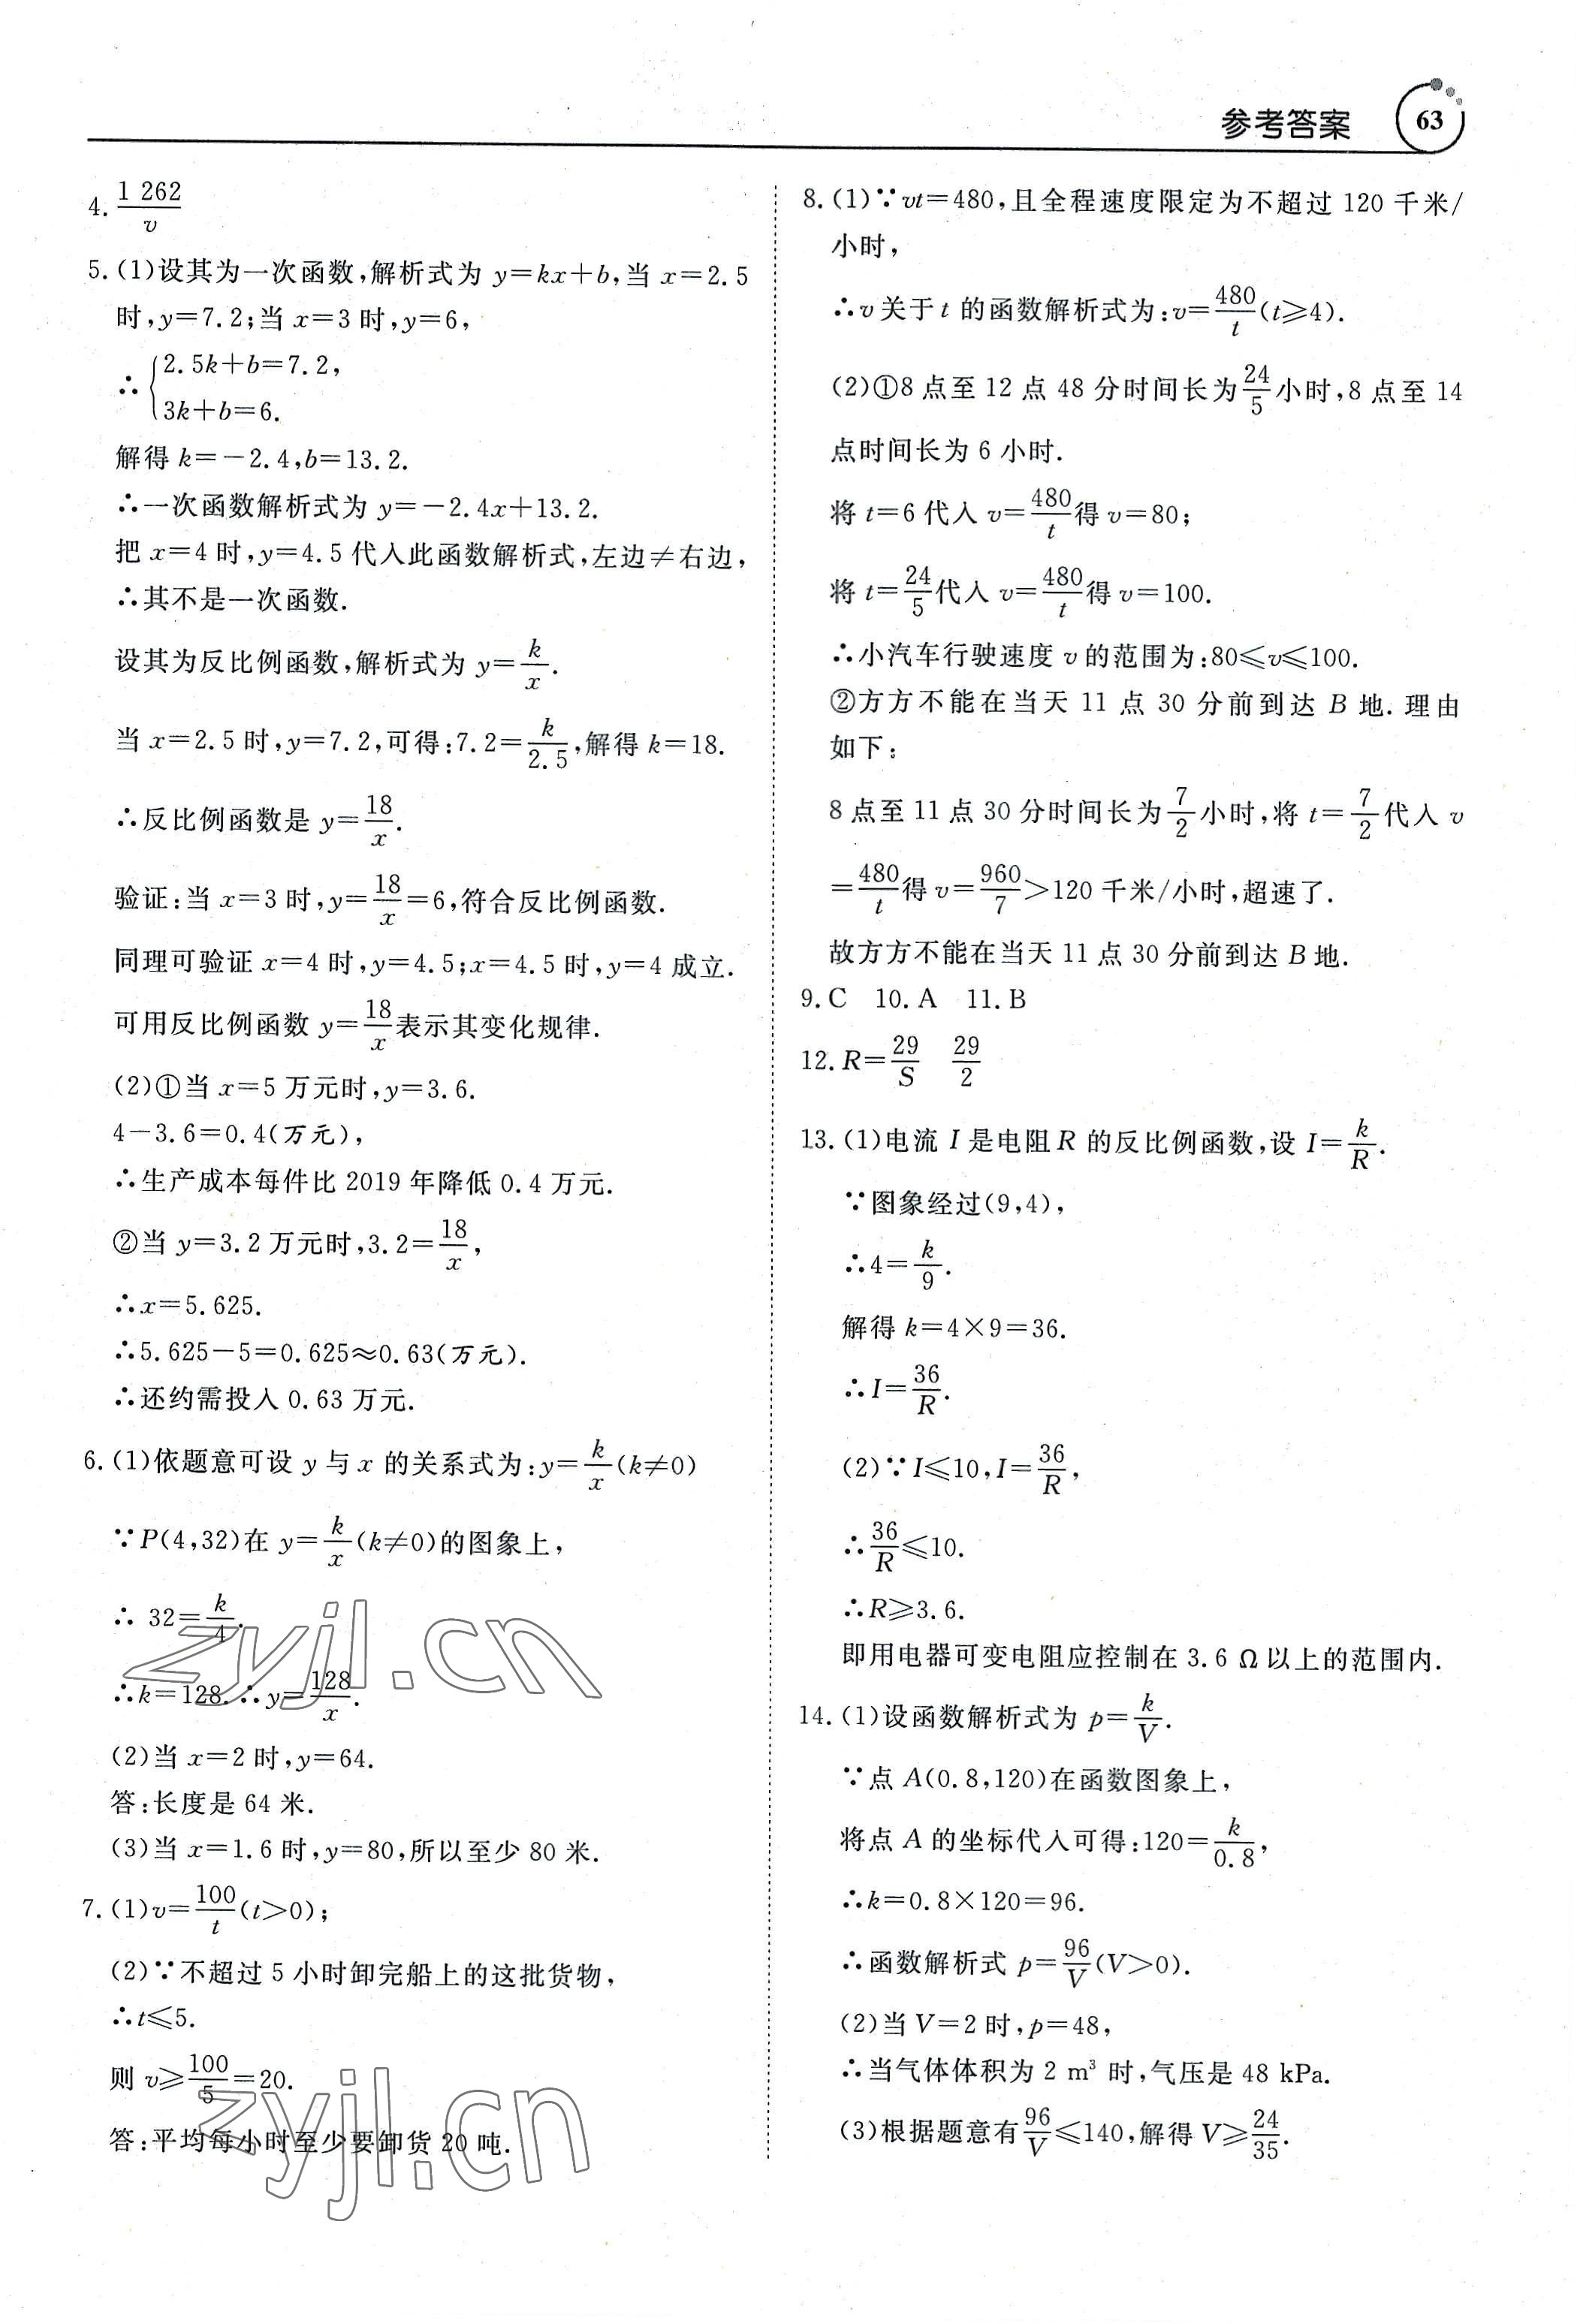 参考答案 63
4. 1 262/v
5. (1)设其为一次函数,解析式为 y=kx+b,当 x=2.5
时,y=7.2;当 x=3 时,y=6,
∴ {2.5k+b=7.2,
3k+b=6.
解得 k=-2.4,b=13.2.
∴一次函数解析式为 y=-2.4x+13.2.
把 x=4 时,y=4.5 代入此函数解析式,左边≠右边,
∴其不是一次函数.
设其为反比例函数,解析式为 y=k/x.
当 x=2.5 时,y=7.2,可得:7.2=k/2.5,解得 k=18.
∴反比例函数是 y=18/x.
验证:当 x=3 时,y=18/x=6,符合反比例函数.
同理可验证 x=4 时,y=4.5;x=4.5 时,y=4 成立.
可用反比例函数 y=18/x表示其变化规律.
(2)①当 x=5 万元时,y=3.6.
4-3.6=0.4(万元),
∴生产成本每件比 2019 年降低 0.4 万元.
②当 y=3.2 万元时,3.2=18/x,
∴x=5.625.
∴5.625-5=0.625≈0.63(万元).
∴还约需投入 0.63 万元.
6. (1)依题意可设 y 与 x 的关系式为:y=k/x(k≠0)
∵P(4,32)在 y=k/x(k≠0)的图象上,
∴ 32=k/4.
∴k=128.∴y=128/x.
(2)当 x=2 时,y=64.
答:长度是 64 米.
(3)当 x=1.6 时,y=80,所以至少 80 米.
7. (1)v=100/t(t>0);
(2)∵不超过 5 小时卸完船上的这批货物,
∴t≤5.
则 v≥100/5=20.
答:平均每小时至少要卸货 20 吨.
8. (1)∵vt=480,且全程速度限定为不超过 120 千米/
小时,
∴v 关于 t 的函数解析式为:v=480/t(t≥4).
(2)①8 点至 12 点 48 分时间长为24/5小时,8 点至 14
点时间长为 6 小时.
将 t=6 代入 v=480/t得 v=80;
将 t=24/5代入 v=480/t得 v=100.
∴小汽车行驶速度 v 的范围为:80≤v≤100.
②方方不能在当天 11 点 30 分前到达 B 地.理由
如下:
8 点至 11 点 30 分时间长为7/2小时,将 t=7/2代入 v
=480/t得 v=960/7>120 千米/小时,超速了.
故方方不能在当天 11 点 30 分前到达 B 地.
9. C 10. A 11. B
12. R=29/S 29/2
13. (1)电流 I 是电阻 R 的反比例函数,设 I=k/R.
∵图象经过(9,4),
∴4=k/9.
解得 k=4×9=36.
∴I=36/R.
(2)∵I≤10,I=36/R,
∴36/R≤10.
∴R≥3.6.
即用电器可变电阻应控制在 3.6 Ω 以上的范围内.
14. (1)设函数解析式为 p=k/V.
∵点 A(0.8,120)在函数图象上,
将点 A 的坐标代入可得:120=k/0.8,
∴k=0.8×120=96.
∴函数解析式 p=96/V(V>0).
(2)当 V=2 时,p=48,
∴当气体体积为 2 m³ 时,气压是 48 kPa.
(3)根据题意有96/V≤140,解得 V≥24/35.
zyjl.cn
zyjl.cn